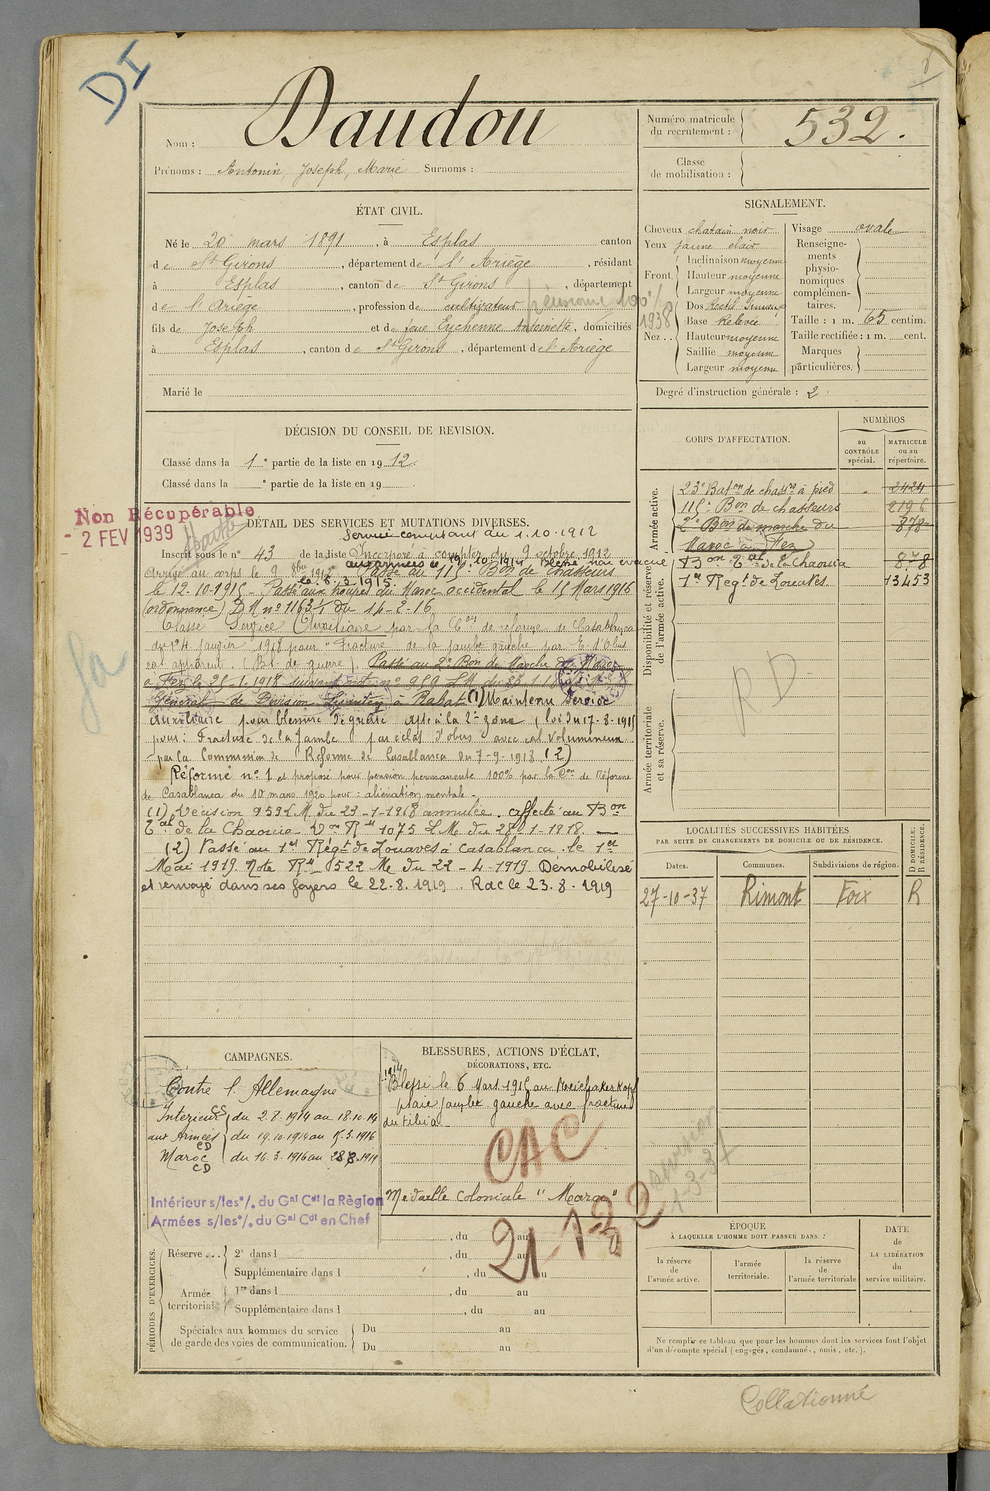 DI
Nom : Daudou
Prénoms : Antonin, Joseph, Marie Surnoms :
Numéro matricule du recrutement : 532.
Classe de mobilisation :
ÉTAT CIVIL.
Né le 20 mars 1891, à Esplas canton
de St Girons, département de l'Ariège, résidant
à Esplas, canton de St Girons, département
de l'Ariège, profession de cultivateur
fils de Joseph et de feue Eychenne Antoinette, domiciliés
à Esplas, canton de St Girons, département de l'Ariège
Marié le
pensionné 100%
1938
SIGNALEMENT.
Cheveux chatain noir
Yeux jaune clair
Front Inclinaison moyenne
Hauteur moyenne
Largeur moyenne
Nez.. Dos Rectil. Sinueux
Base Relevée
Hauteur moyenne
Saillie moyenne
Largeur moyenne
Visage ovale
Renseignements physionomiques complémentaires.
Taille : 1 m. 65 centim.
Taille rectifiée : 1 m. cent.
Marques particulières.
Degré d'instruction générale : 2
DÉCISION DU CONSEIL DE REVISION.
Classé dans la 1e partie de la liste en 1912.
Classé dans la e partie de la liste en 19
CORPS D'AFFECTATION.
NUMÉROS
au CONTRÔLE spécial.
MATRICULE ou au répertoire.
Armée active.
23e Baton de chasrs à pied 2424
115e Bon de chasseurs 2196
2e Bon de marche du 878
Maroc à Fez
Disponibilité et réserve de l'armée active.
Bon Tal de la Chaouia 878
1er Regt de Zouaves 13453
Armée territoriale et sa réserve.
RD
Non Récupérable
- 2 FEV 1939
DÉTAIL DES SERVICES ET MUTATIONS DIVERSES.
Service comptant du 1.10.1912
Inscrit sous le n° 43 de la liste Incorporé à compter du 9 octobre 1912
aux armées le 19.10.1914 Blessé non évacué
Arrivé au corps le 9 8bre 1912 Passé au 115e Bon de Chasseurs
le 6.3.1915.
le 12-10-1915 - Passé aux troupes du Maroc occidental le 15 Mars 1916
(ordonnance) DM n° 11634 du 14-2-16
Classé Service Auxiliaire par la Con de réforme de Casablanca
du 4 janvier 1918 pour "Fracture de la jambe gauche par E. d'obus
cal apparent. (Bl. de guerre). Passé au 2e Bon de Marche du Maroc
à Fez le 25-1-1918 suivant note n° 959 LM du 23.1.18
Général de Division Lyautey à Rabat (1) Maintenu Service
Auxiliaire pour blessure de guerre apte à la 2e zone (loi du 17-8-1915
pour : Fracture de la jambe par éclat d'obus avec cal volumineux
par la Commission de Réforme de Casablanca du 7-9-1918 (2)
Réformé n° 1 et proposé pour pension permanente 100% par la Con de Réforme
de Casablanca du 10 mars 1920 pour : aliénation mentale -
(1) Décision 959 LM du 23-1-1918 annulée. affecté au Bon
Tal de la Chaouia Don Rt 1075 LM du 28-1-1918. —
(2) Passé au 1er Régt de Zouaves à Casablanca le 1er
Mai 1919. Note Rt 522 Me du 22-4-1919 Démobilisé
et renvoyé dans ses foyers le 22.8.1919. Rac le 23.8.1919
LOCALITÉS SUCCESSIVES HABITÉES
PAR SUITE DE CHANGEMENTS DE DOMICILE OU DE RÉSIDENCE.
Dates. Communes. Subdivisions de région. D DOMICILE; R RÉSIDENCE.
27-10-37 Rimont Foix R
CAMPAGNES.
Contre l'Allemagne
Intérieur CS du 2.8.1914 au 18.10.14
aux Armées CD du 19.10.1914 au 15.3.1916
Maroc CD du 16.3.1916 au 28.8.1919
Intérieur s/les°/. du Gal Cdt la Région
Armées s/les°/. du Gal Cdt en Chef
BLESSURES, ACTIONS D'ÉCLAT,
DÉCORATIONS, ETC.
1914
Blessé le 6 Mars 1915 au Reichakerkopf
plaie jambe gauche avec fracture
du tibia
CAC
Médaille Coloniale "Maroc"
21-1-22
1-3-37
PÉRIODES D'EXERCICES.
Réserve... 2e dans l , du au
Supplémentaire dans l , du au
Armée territoriale 1re dans l , du au
Supplémentaire dans l , du au
Spéciales aux hommes du service de garde des voies de communication. Du au
Du au
ÉPOQUE
À LAQUELLE L'HOMME DOIT PASSER DANS :
la réserve de l'armée active.
l'armée territoriale.
la réserve de l'armée territoriale
DATE de LA LIBÉRATION du service militaire.
Ne remplir ce tableau que pour les hommes dont les services font l'objet
d'un décompte spécial (engagés, condamnés, omis, etc.).
Collationné